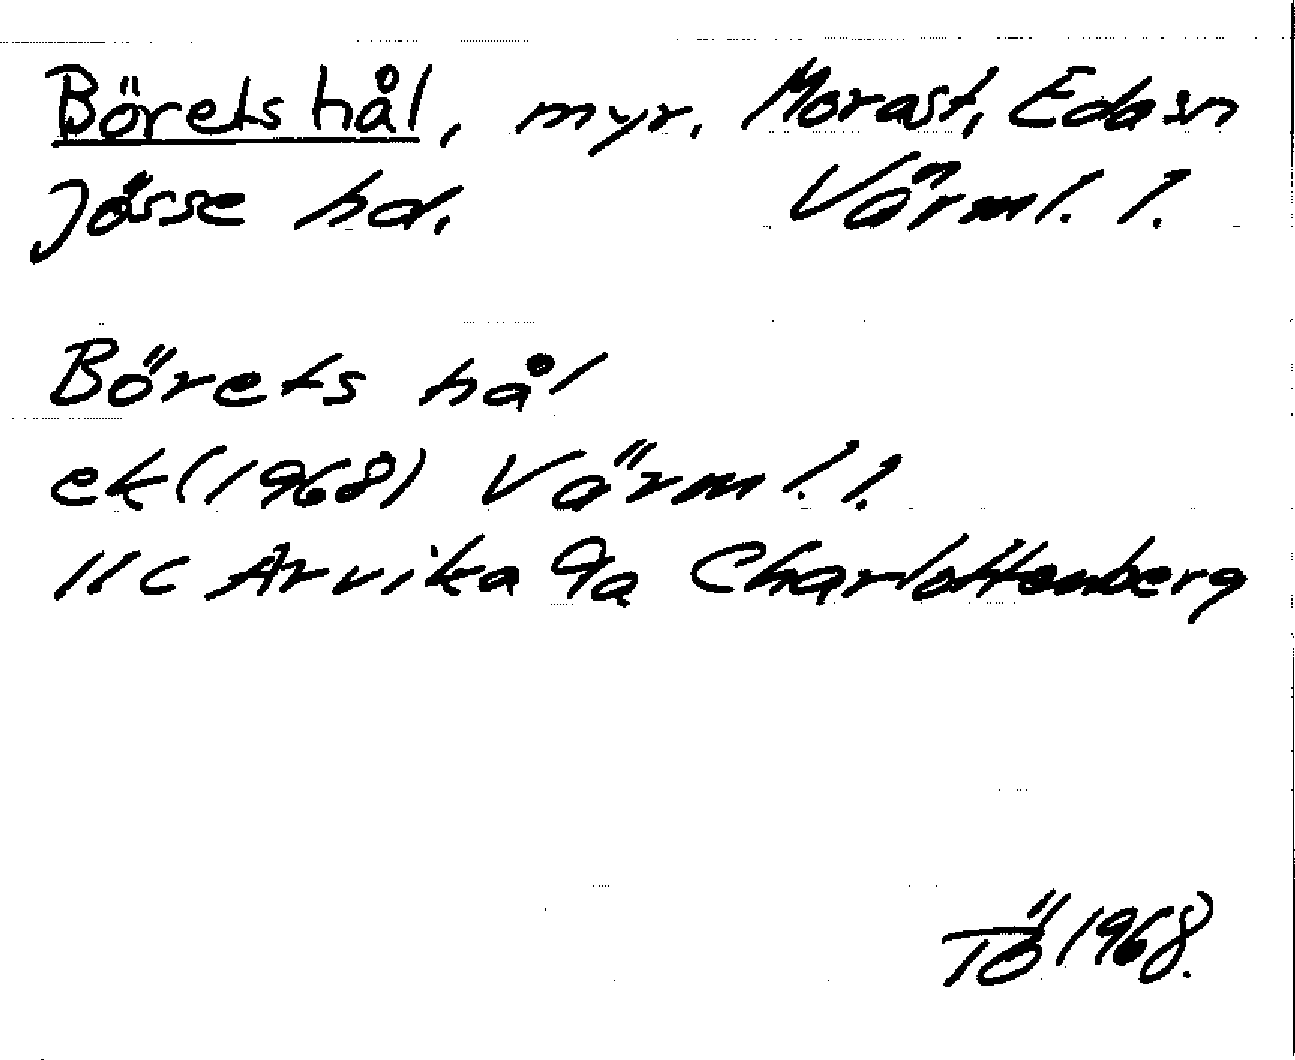 Börets hål, myr. Morast, Eda sn
Jösse hd. Värml. l.
Börets hål
ek (1968) Värml. l.
11C Arvika 9a Charlottenberg
TÖ 1968.